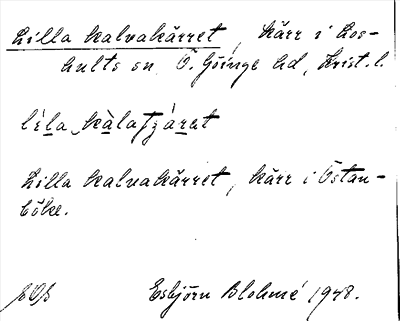 Lilla kalvakärret, kärr i Los-
hults sn Ö. Göinge hd, Krist. l.
Lilla kalvakärret, kärr i Östan-
böke.
Esbjörn Blohmé 1948.